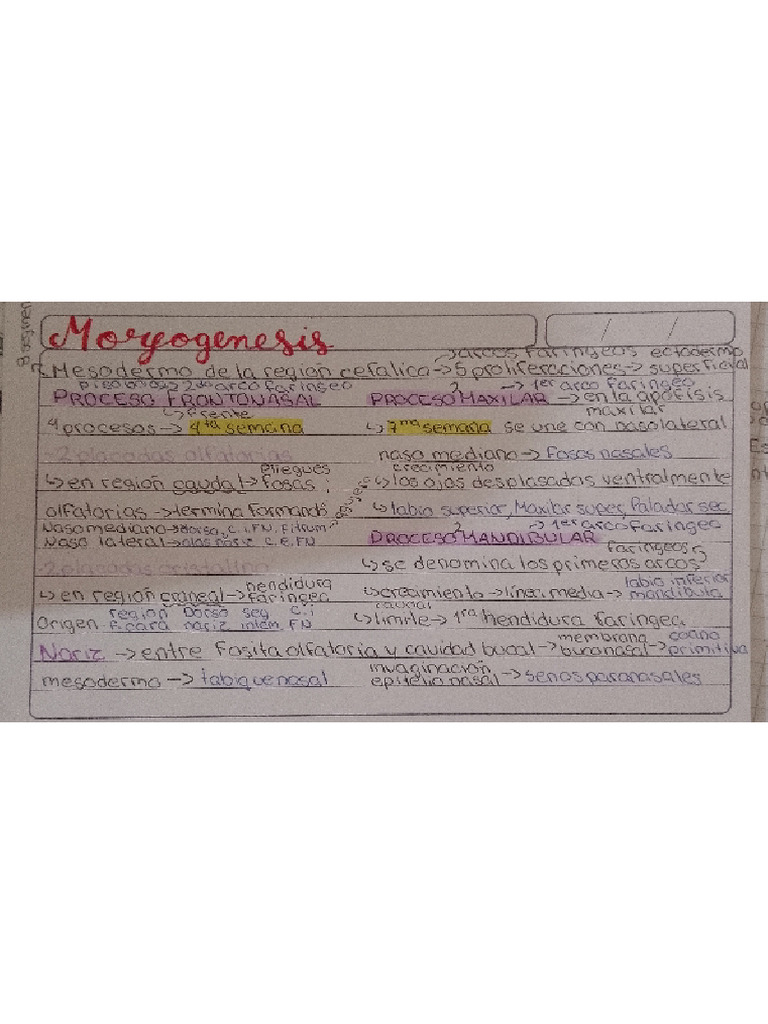 Moryogenesis
→arcos faringeos ectodermo
Mesodermo de la región cefalica→5 proliferaciones→superficial
2do arco faringeo
2 →1er arco faringeo
PROCESO FRONTONASAL PROCESO MAXILAR →en la apofisis
↳frente maxilar
4 procesos→4ta semana ↳7ma semana se une con nasolateral
-2 placodas olfatorias naso mediano→Fosas nasales
pliegues crecimiento
↳en región caudal→fosas; ↳los ojos desplasados ventralmente
olfatorias→termina formando ↳labio superior, Maxilar super, Paladar sec
Nasomediano→Dorso, C.i.FN. Filtrum 2 →1er arco faringeo
Naso lateral→alas nariz C.E.FN PROCESO MANDIBULAR
faringeos
-2 placodas cristalino ↳se denomina los primeros arcos
hendidura labio inferior
↳en región craneal→faringea ↳crecimiento→línea media→mandíbula
región Dorso seg C.i caudal
Origen F.cara nariz intem. FN ↳limite→1ra Hendidura faringea.
membrana coana
Nariz →entre Fosita olfatoria y cavidad bucal→buconasal→primitiva
invaginación
mesodermo→tabique nasal epitelio nasal→senos paranasales